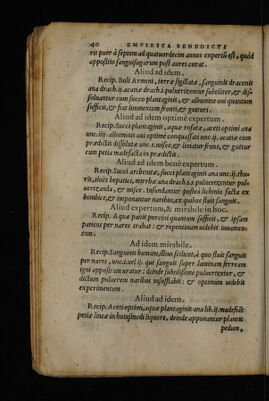 40 EMPIRICA BENEDICTI
rit puer à septem ad quatuordecim annos expertū est, quòd
appositio sanguisugarum post aures curat.
Aliud ad idem.
Recip. Boli Armeni, terræ sigillatæ, sanguinis draconis
ana drach.ij. acatiæ drach.j. pulverizentur subtiliter, & dis-
soluantur cum succo plantaginis, & albumine oui quantum
sufficit, & fiat linimentum fronti, & gutturi.
Aliud ad idem optimè expertum.
Recip. Succi plantaginis, aquæ rosatæ, aceti optimi ana
unc.iiij. albuminis oui optimè conquassati unc.ij. acatiæ cum
prædictis dissolutæ unc.s. misce, & liniatur frons, & guttur
cum petia madefacta in prædictis.
Aliud ad idem benè expertum.
Recip. Succi
rū, aloës hepatici, ana drach.s. pulverizentur pul-
uerizanda, & misce. Insundentur postea lichinia ex bom-
bice, & imponantur naribus, ex quibus fluit sanguis.
Aliud expertum, & mirabile in hoc.
Recip. Aquæ panis porcini quantum sufficit, & ipsam
patiens per nares trahat: & repentinum uidebit iuuamen-
tum.
Ad idem mirabile.
Recip. Sanguinis humani, illius scilicet, à quo fluit sanguis
per nares, unc.s. uel ij. qui sanguis super laminam ferream
igni appositam uratur: deinde subtilissimè puluerizetur, &
dictum puluerem naribus insufflabis: & optimum uidebis
experimentum.
Aliud ad idem.
Recip. Aceti optimi, aquæ plantaginis ana lib.ij. madefiāt
petiæ lineæ in huiusmodi liquore, deinde apponantur plantis
pedum,